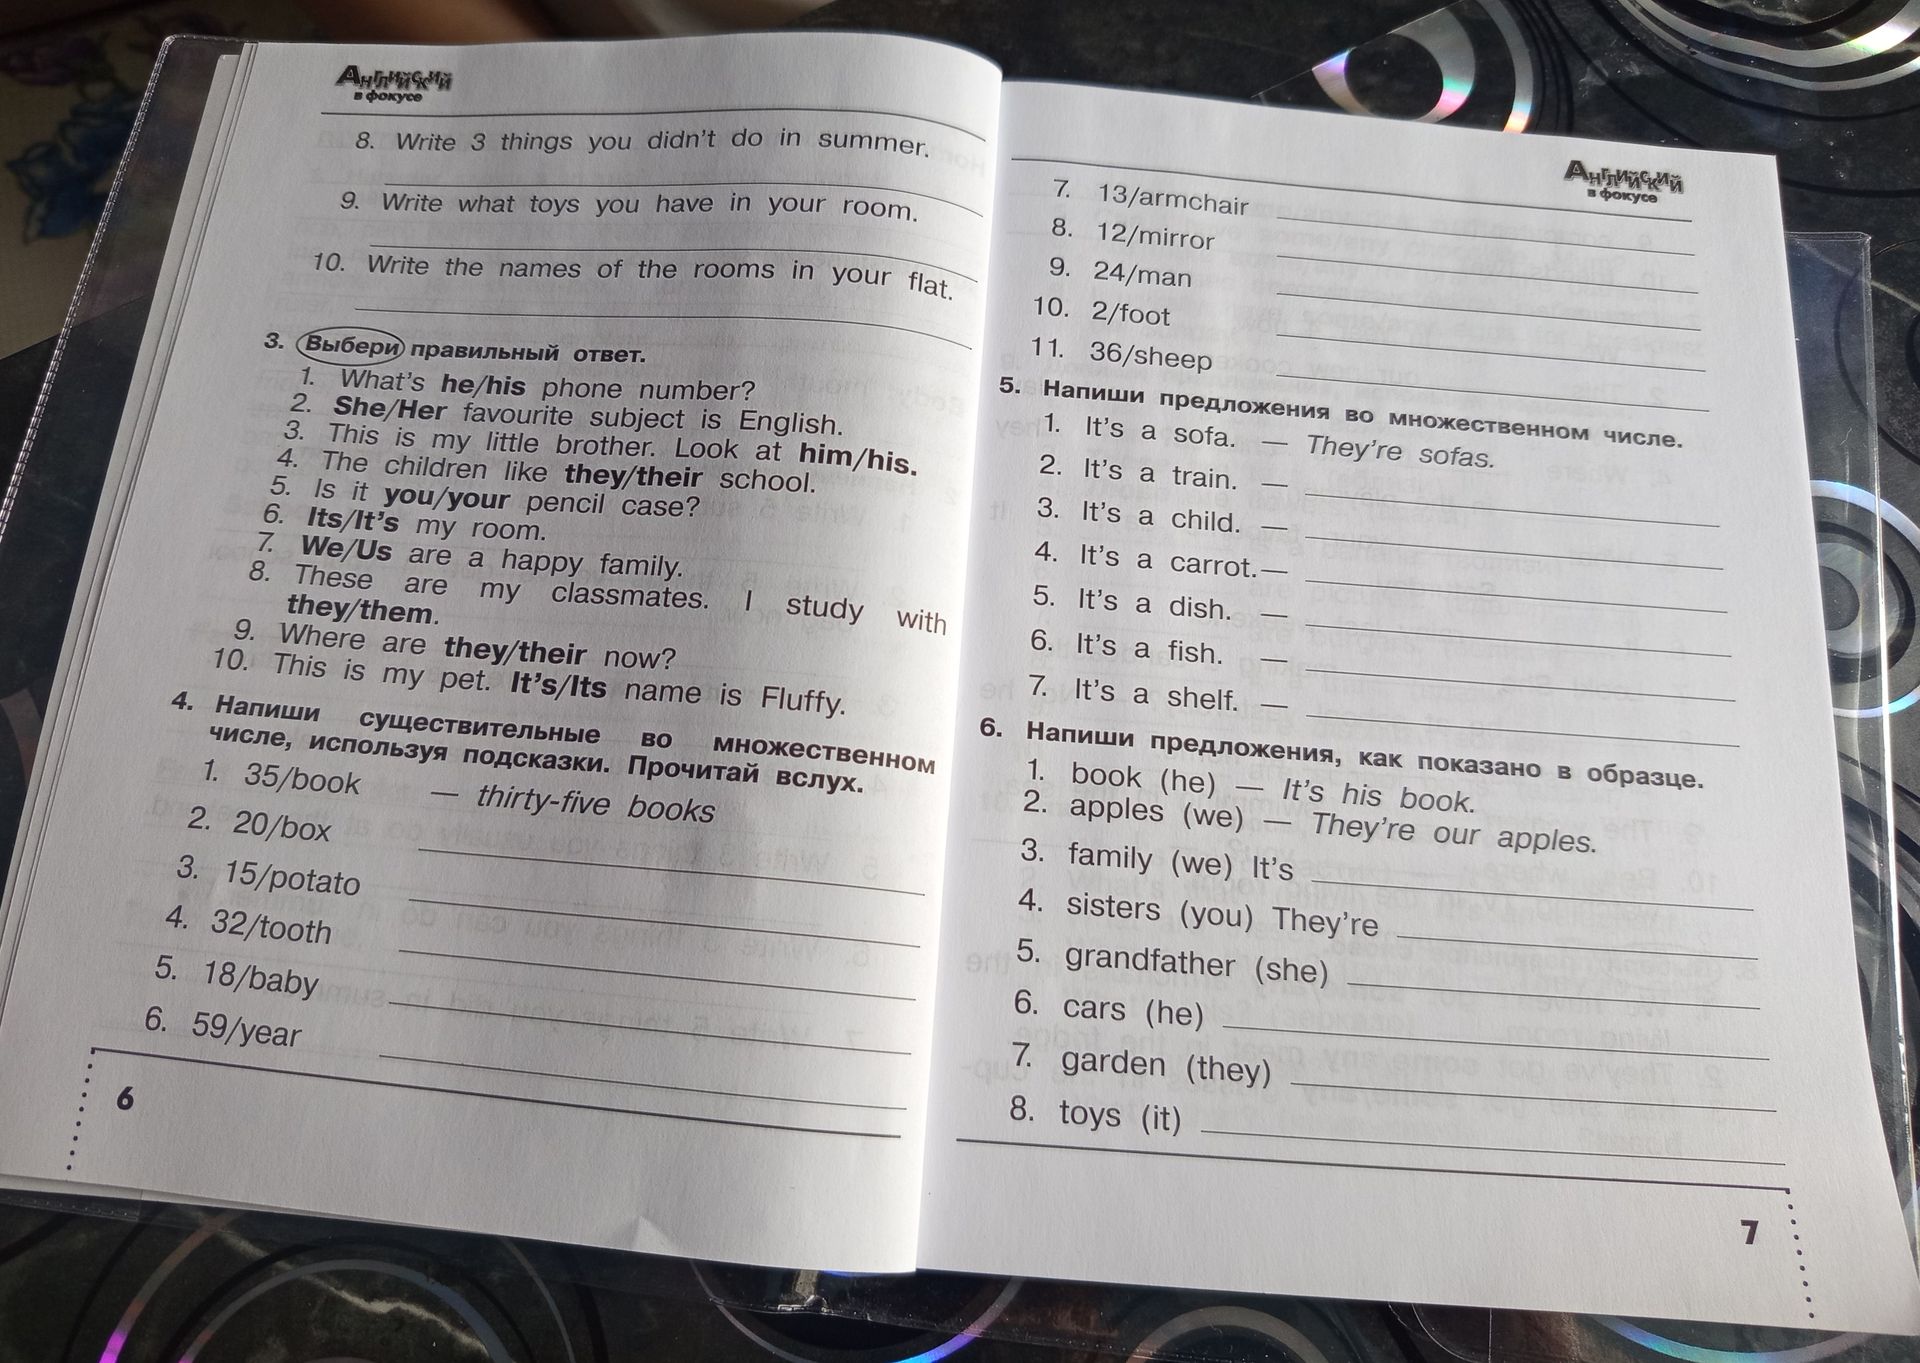 Английский
в фокусе
8. Write 3 things you didn't do in summer.
9. Write what toys you have in your room.
10. Write the names of the rooms in your flat.
3. Выбери правильный ответ.
1. What's he/his phone number?
2. She/Her favourite subject is English.
3. This is my little brother. Look at him/his.
4. The children like they/their school.
5. Is it you/your pencil case?
6. Its/It's my room.
7. We/Us are a happy family.
8. These are my classmates. I study with
they/them.
9. Where are they/their now?
10. This is my pet. It's/Its name is Fluffy.
4. Напиши существительные во множественном
числе, используя подсказки. Прочитай вслух.
1. 35/book — thirty-five books
2. 20/box
3. 15/potato
4. 32/tooth
5. 18/baby
6. 59/year
6
Английский
в фокусе
7. 13/armchair
8. 12/mirror
9. 24/man
10. 2/foot
11. 36/sheep
5. Напиши предложения во множественном числе.
1. It's a sofa. — They're sofas.
2. It's a train. —
3. It's a child. —
4. It's a carrot. —
5. It's a dish. —
6. It's a fish. —
7. It's a shelf. —
6. Напиши предложения, как показано в образце.
1. book (he) — It's his book.
2. apples (we) — They're our apples.
3. family (we) It's
4. sisters (you) They're
5. grandfather (she)
6. cars (he)
7. garden (they)
8. toys (it)
7